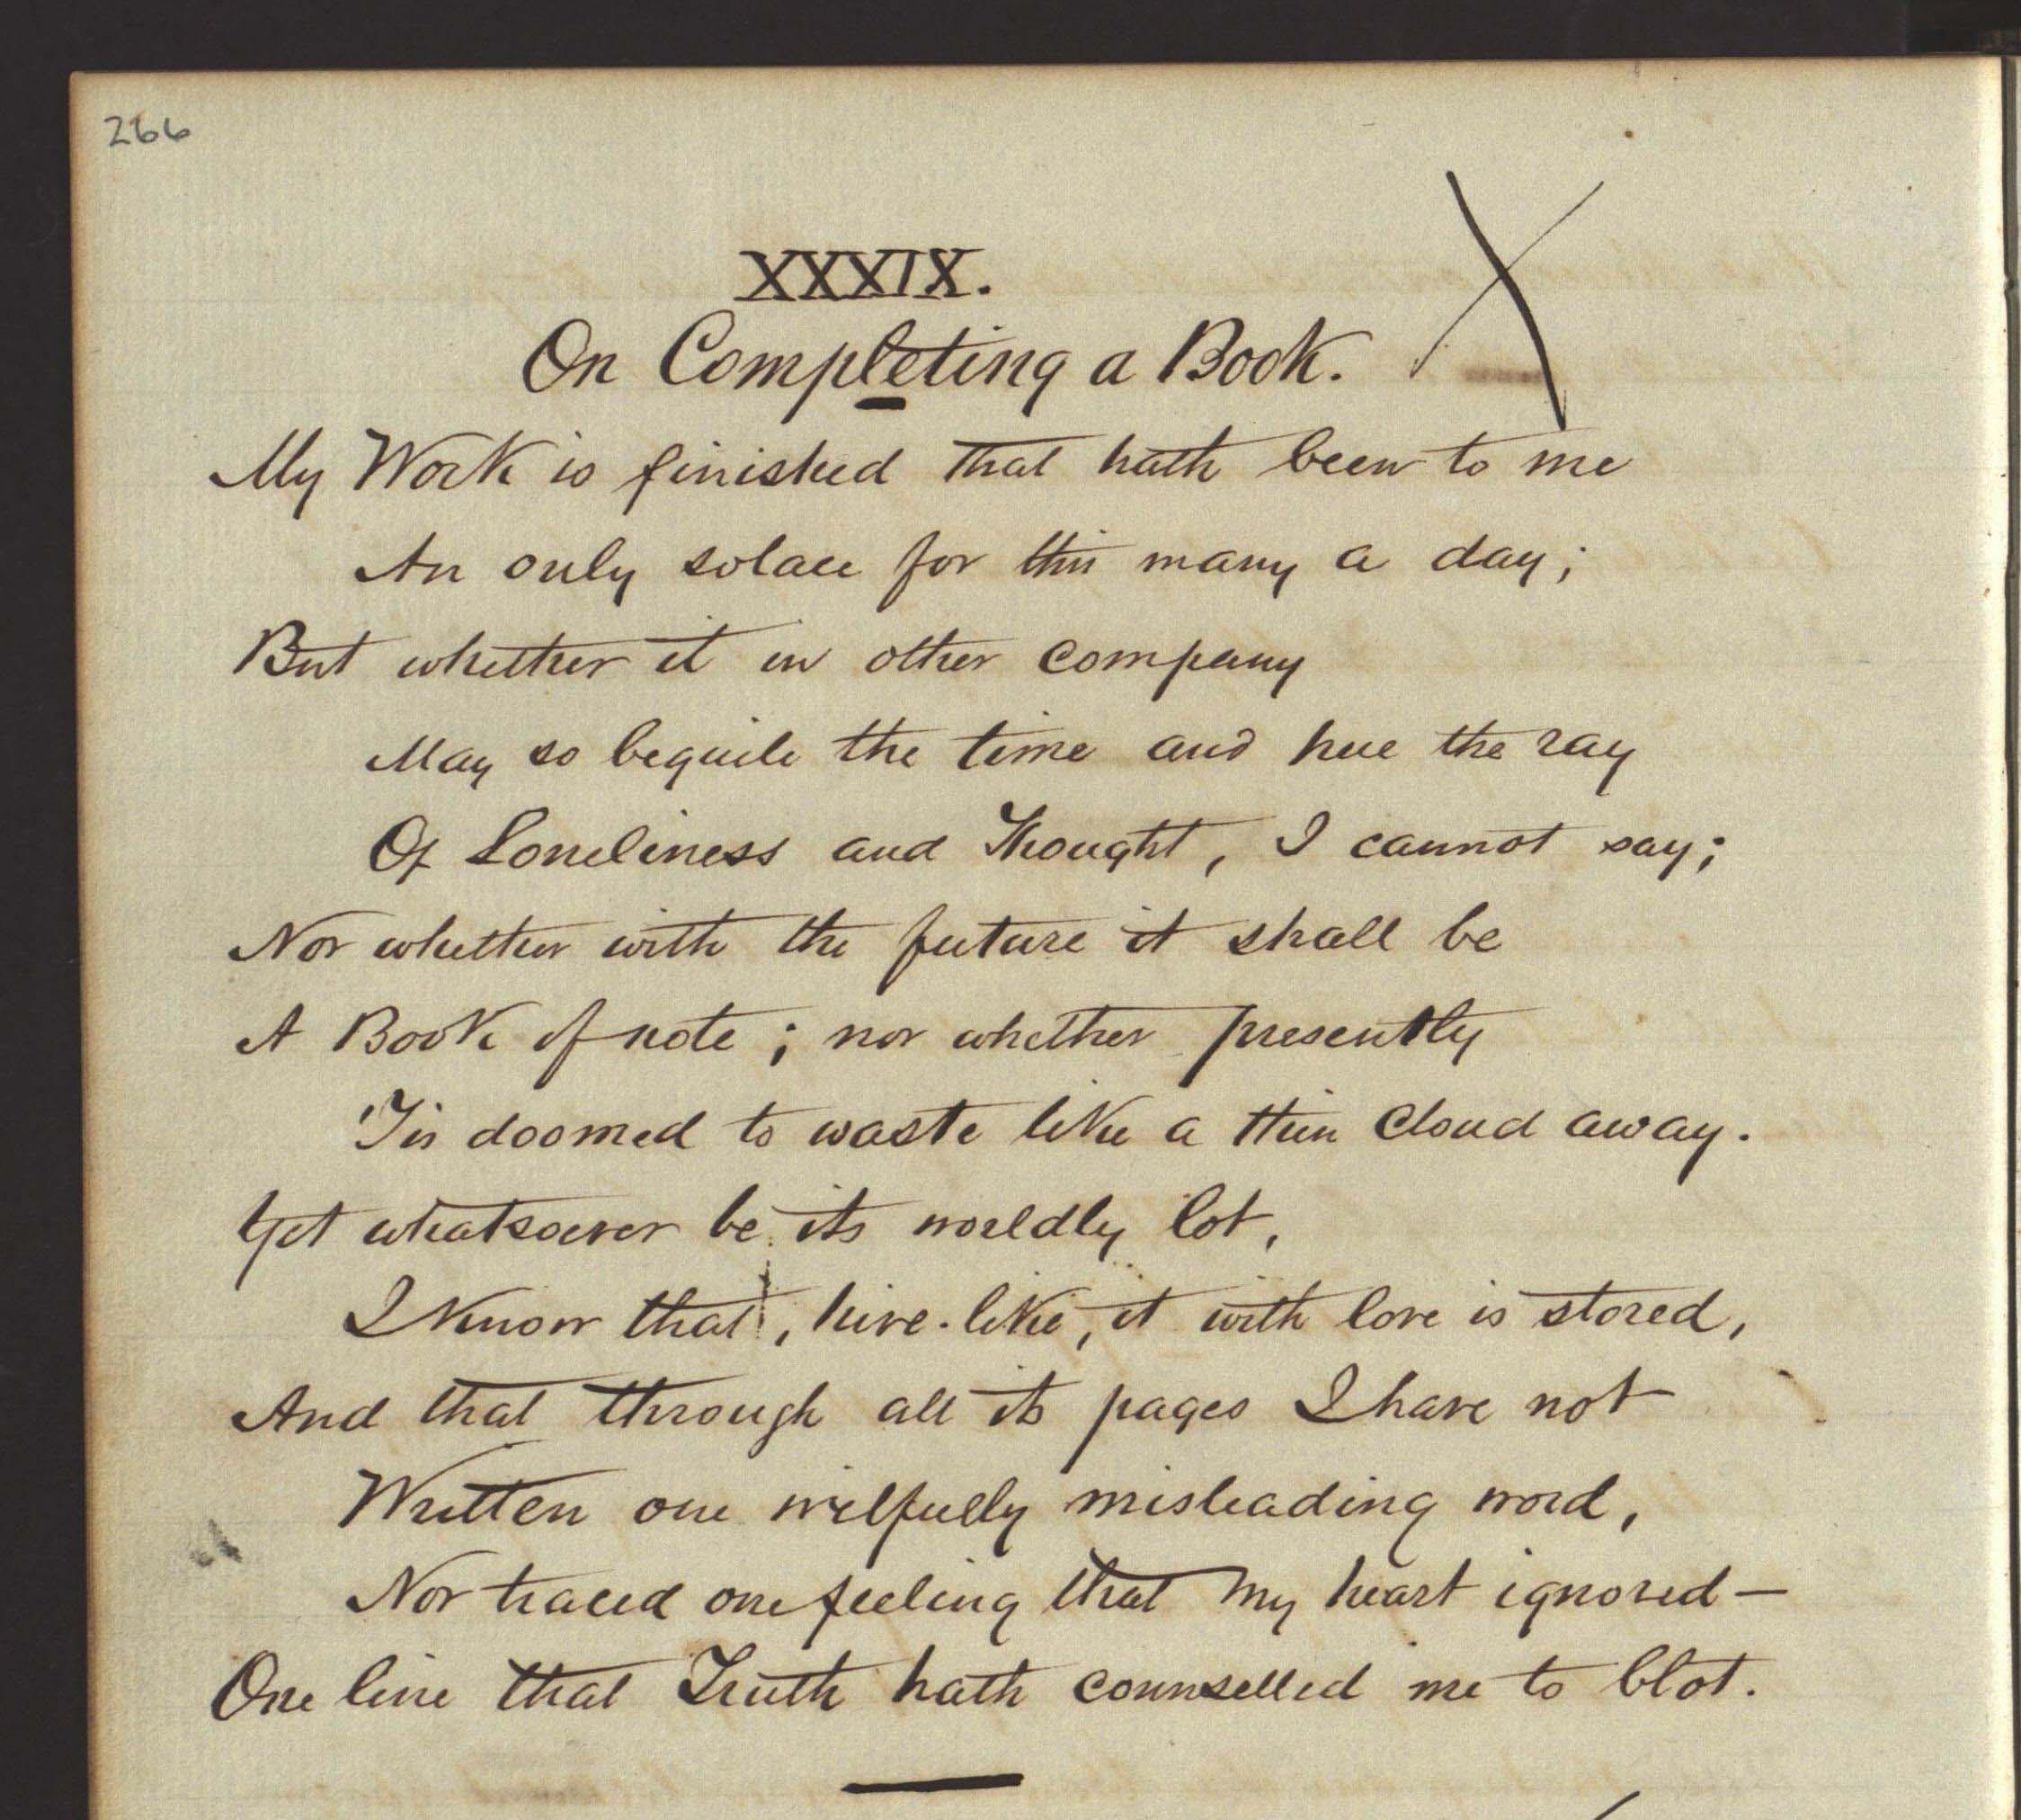 266
XXXIX.
On Completing a Book.
My Work is finished that hath been to me
An only solace for this many a day;
But whether it in other company
May so beguile the time and hue the ray
Of Loneliness and Thought, I cannot say;
Nor whether with the future it shall be
A Book of note; nor whether presently
'Tis doomed to waste like a thin cloud away.
Yet whatsoever be its worldly lot,
I know that, hive-like, it with love is stored,
And that through all its pages I have not
Written one wilfully misleading word,
Nor traced one feeling that my heart ignored—
One line that Truth hath counselled me to blot.